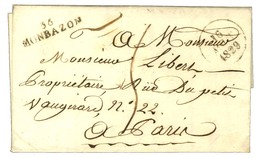 36
MONBAZON
A Monsieur
Monsieur Libert
Propriétaire Rüe Du petit
Vaugirard N.° 22.
A Paris
1829